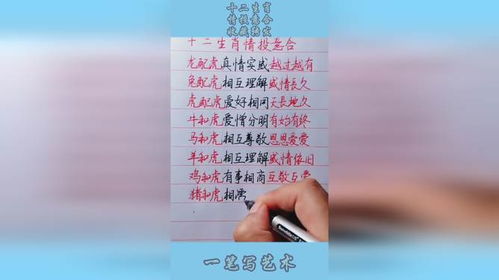 十二生肖
情投意合
收藏转发
十二生肖情投意合
龙配虎真情实感越过越有
兔配虎相互理解感情长久
虎配虎爱好相同天长地久
牛和虎爱憎分明有始有终
马和虎相互尊敬恩恩爱爱
羊和虎相互理解感情依旧
鸡和虎有事相商互敬互爱
猪和虎相濡
一笔写艺术